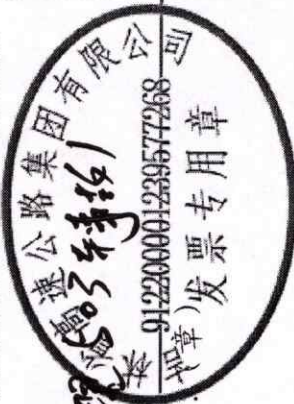 林省高速公路集团有限公司
912200001239577268
章)
发票专用章